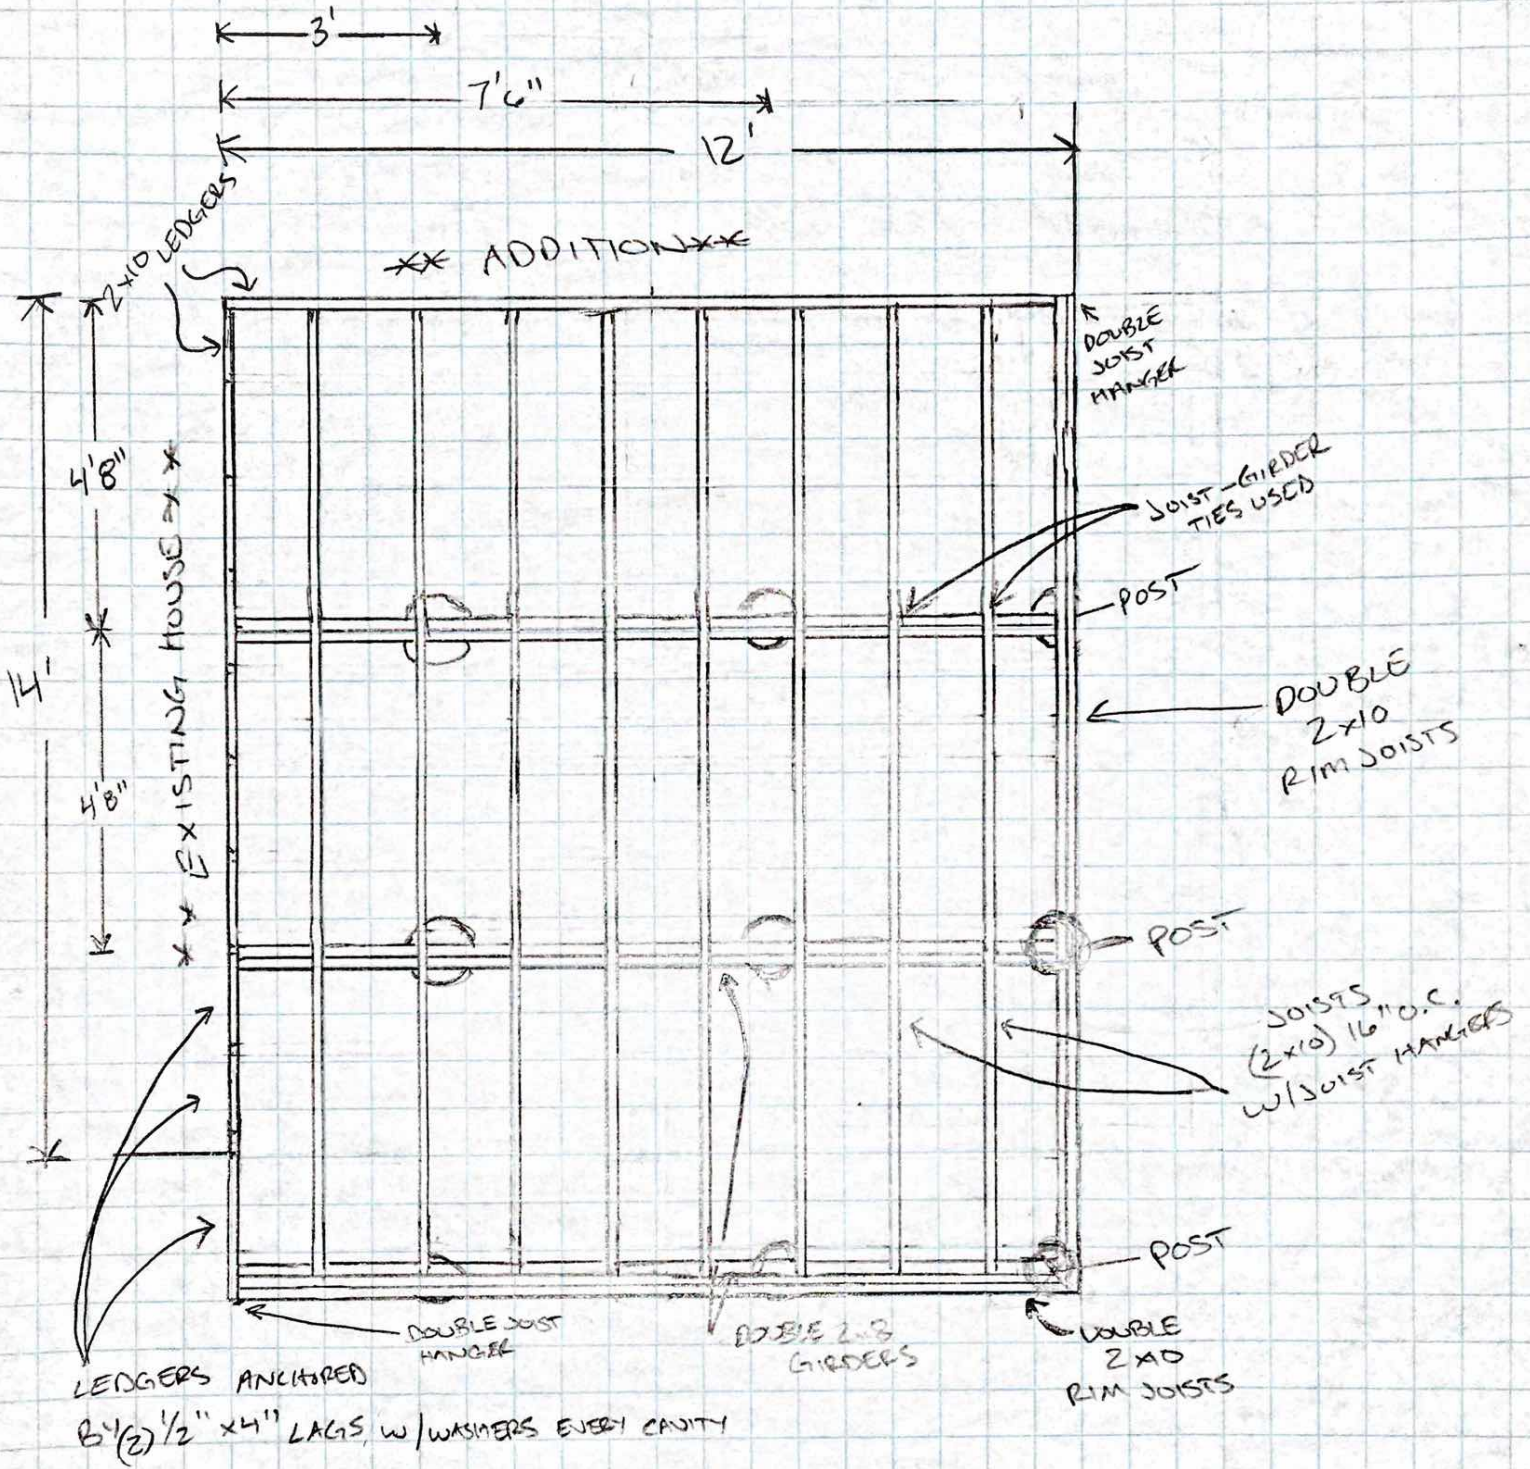 3'
7'6"
12'
2x10 LEDGERS
** ADDITION **
DOUBLE
JOIST
HANGER
4'8"
** EXISTING HOUSE **
JOIST-GIRDER
TIES USED
POST
14'
DOUBLE
2x10
RIM JOISTS
4'8"
POST
JOISTS
(2x10) 16" O.C.
W/JOIST HANGERS
POST
DOUBLE JOIST
HANGER
DOUBLE 2x8
GIRDERS
DOUBLE
2x10
RIM JOISTS
LEDGERS ANCHORED
BY (2) 1/2" x4" LAGS, W/WASHERS EVERY CAVITY